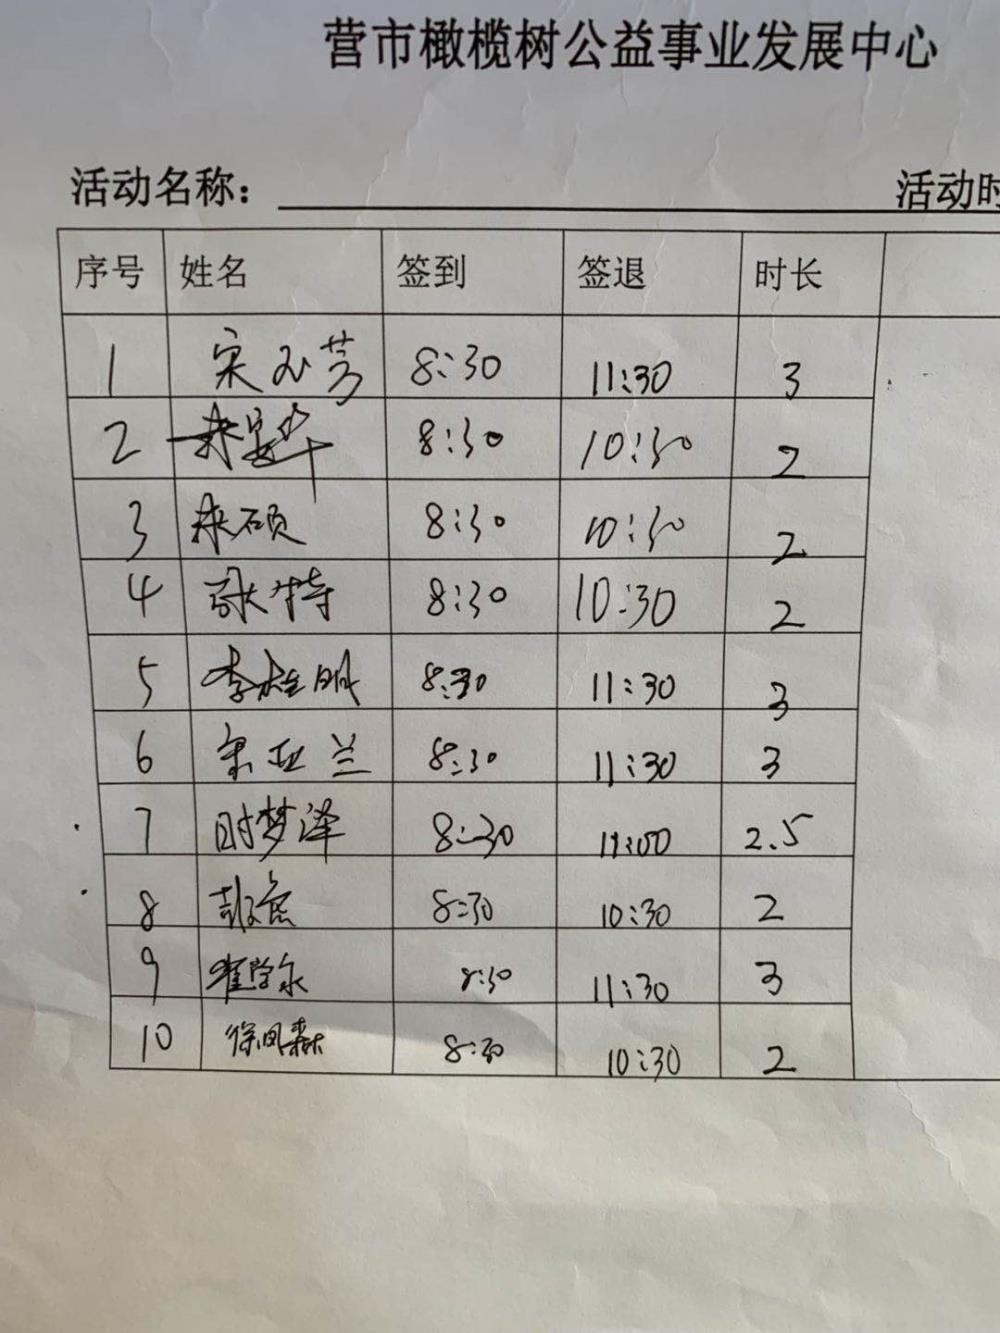 营市橄榄树公益事业发展中心
活动名称： 活动时
序号 姓名 签到 签退 时长
1 宋玉芳 8:30 11:30 3
2 8:30 10:30 2
3 来硕 8:30 10:30 2
4 张特 8:30 10:30 2
5 李桂明 8:30 11:30 3
6 宋亚兰 8:30 11:30 3
7 时梦泽 8:30 11:00 2.5
8 8:30 10:30 2
9 8:30 11:30 3
10 徐凤森 8:30 10:30 2